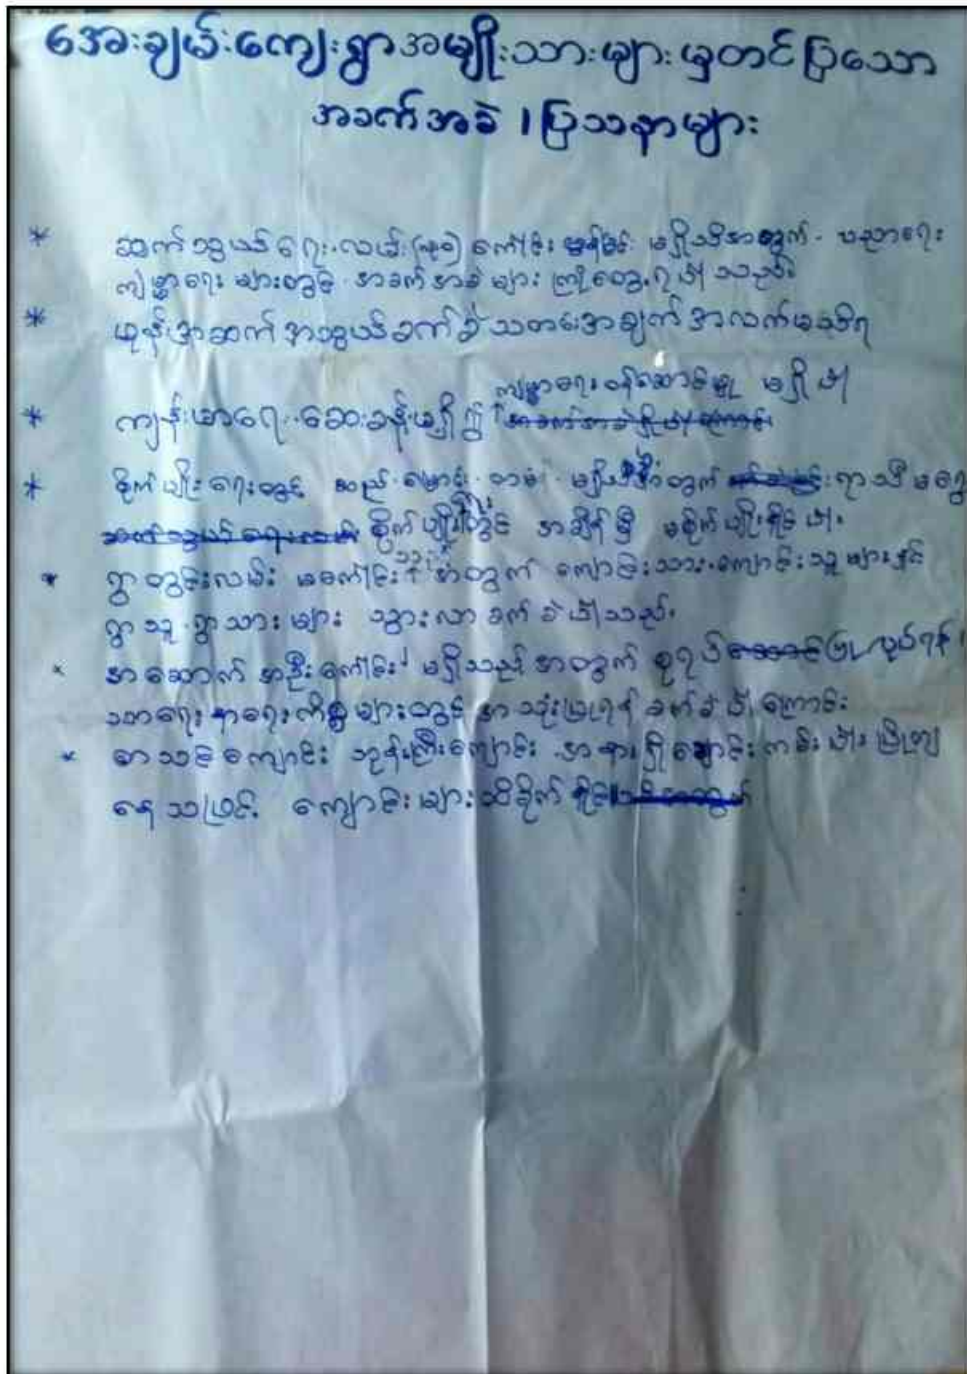 အေးချမ်းကျေးရွာအမျိုးသားများမှတင်ပြသော
အခက်အခဲ ၊ ပြဿနာများ
* ဆက်သွယ်ရေး၊ လမ်း ကောင်းမွန်ခြင်း မရှိသည့်အတွက် ပညာရေး
ကျန်းမာရေး များတွင် အခက်အခဲ များ ကြုံတွေ့ရပါသည်။
* ဖုန်းအဆက်အသွယ်ခက်ခဲ သတင်းအချက်အလက်မသိရ
ကျန်းမာရေးဝန်ဆောင်မှု မရှိပါ
* ကျန်းမာရေး ဆေးခန်းမရှိ၍
* စိုက်ပျိုးရေးတွင် ဆည် မြောင်း တာမံ မရှိသည့်အတွက် ရာသီမရွေး
စိုက်ပျိုး အချိန်မှီ မစိုက်ပျိုးနိုင်ပါ။
* ရွာတွင်းလမ်း မကောင်းသည့်အတွက် ကျောင်းသား၊ ကျောင်းသူများနှင့်
ရွာသူ ရွာသားများ သွားလာခက်ခဲပါသည်။
* အဆောက်အဦးကောင်း မရှိသည့်အတွက် စုရပ် ပြုလုပ်ရန်၊
သာရေးနာရေးကိစ္စများတွင် အသုံးပြုရန် ခက်ခဲပါကြောင်း
* စာသင်ကျောင်း ဘုန်းကြီးကျောင်း အနားရှိချောင်းကမ်းပါး ပြိုကျ
နေသဖြင့် ကျောင်းများထိခိုက်နိုင်